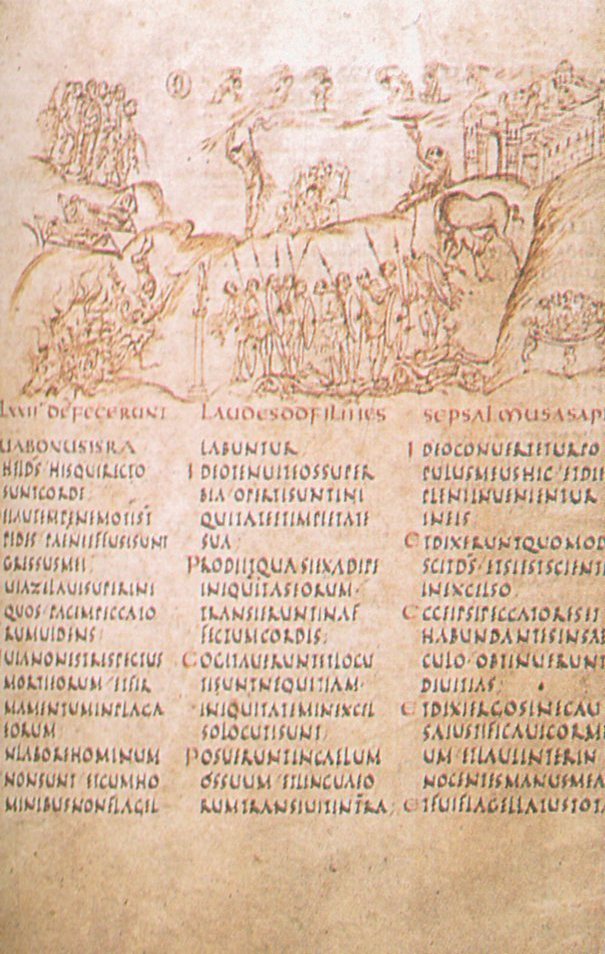 LXXII DEFECERUNT LAUDES DD FILII IES SE PSALMUS ASAP
UA BONUS ISRA
HEL DS HIS QUI RECTO
SUNT CORDE
EI AUTEM PENE MOTI ST
PEDES PAENE EFFUSI SUNT
GRESSUS MEI
UIA ZELAUI SUPER INI
QUOS PACEM PECCATO
RUM UIDENS
UIA NON EST RESPECTUS
MORTI EORUM ET FIR
MAMENTUM IN PLAGA
EORUM
N LABORE HOMINUM
NON SUNT ET CUM HO
MINIBUS NON FLAGEL
LABUNTUR
IDEO TENUIT EOS SUPER
BIA OPERTI SUNT INI
QUITATE ET IMPIETATE
SUA
PRODIIT QUASI EX ADIPE
INIQUITAS EORUM
TRANSIERUNT IN AF
FECTUM CORDIS
COGITAUERUNT ET LOCU
TI SUNT NEQUITIAM
INIQUITATEM IN EXCEL
SO LOCUTI SUNT
POSUERUNT IN CAELUM
OS SUUM ET LINGUA EO
RUM TRANSIUIT IN TRA
IDEO CONUERTETUR PO
PULUS MEUS HIC ET DIE
PLENI INUENIENTUR
IN EIS
ET DIXERUNT QUOMOD
SCIT DS ET SI EST SCIENT
IN EXCELSO
ECCE IPSI PECCATORES ET
HABUNDANTES IN SAE
CULO OBTINUERUNT
DIUITIAS
ET DIXI ERGO SINE CAU
SA IUSTIFICAUI COR ME
UM ET LAUI INTER IN
NOCENTES MANUS MEA
ET FUI FLAGELLATUS TOTA